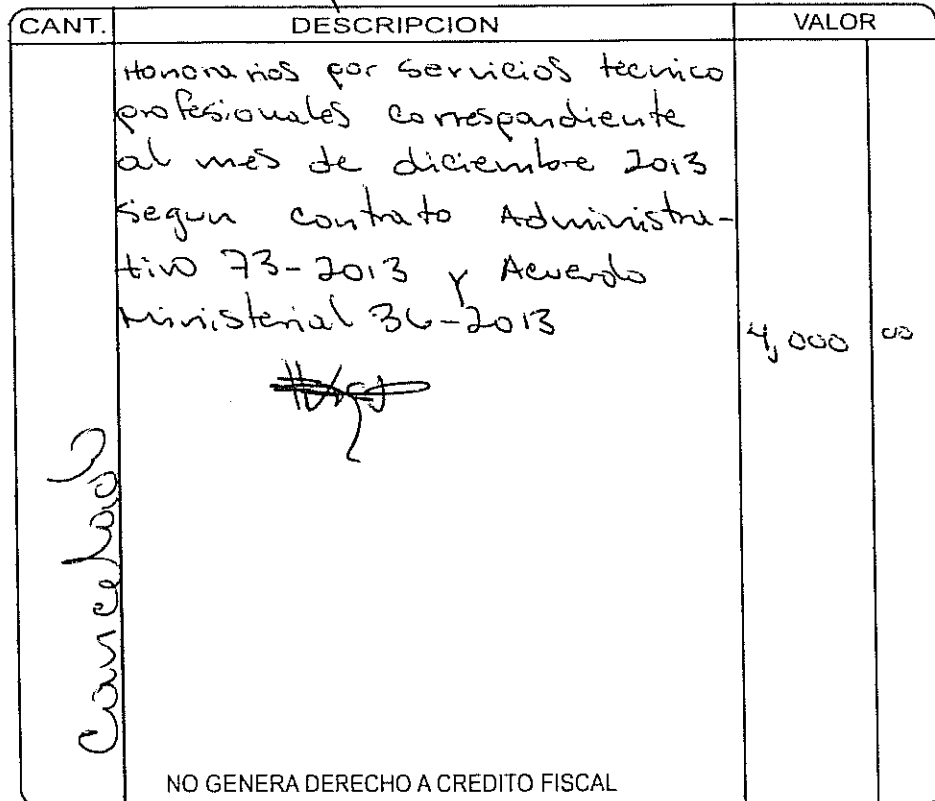 CANT. DESCRIPCION VALOR
Honorarios por servicios tecnico
profesionales correspondiente
al mes de diciembre 2013
segun contrato Administra-
tivo 73-2013 y Acuerdo
Ministerial 36-2013
4,000 00
Cancelado
NO GENERA DERECHO A CREDITO FISCAL